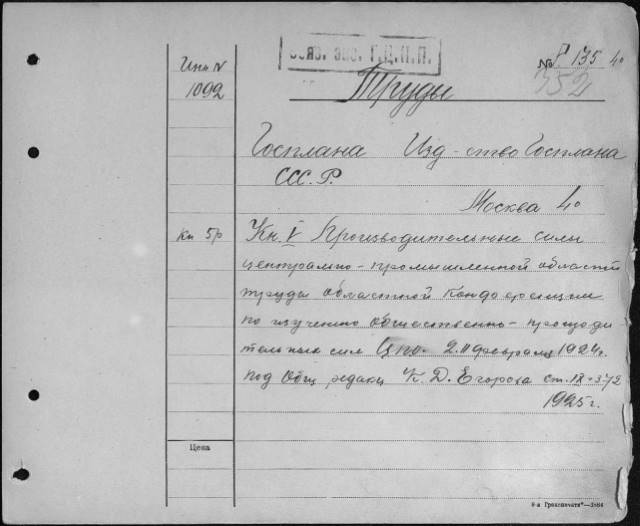 Обяз. экс. Г.Ц.К.П.
Инв N
1092
№ Р 135 4º
352
Труды
Госплана Изд-ство Госплана
СССР.
Москва 4º
Кн 5р
Кн. V Производительные силы
центрально-промышленной области
труды областной конференции
по изучению общественно-производи
тельных сил Ц.п.о. 2-11 февраля 1924г.
под общ редакц К. Д. Егорова ст. IX+372
1925 г.
Цена